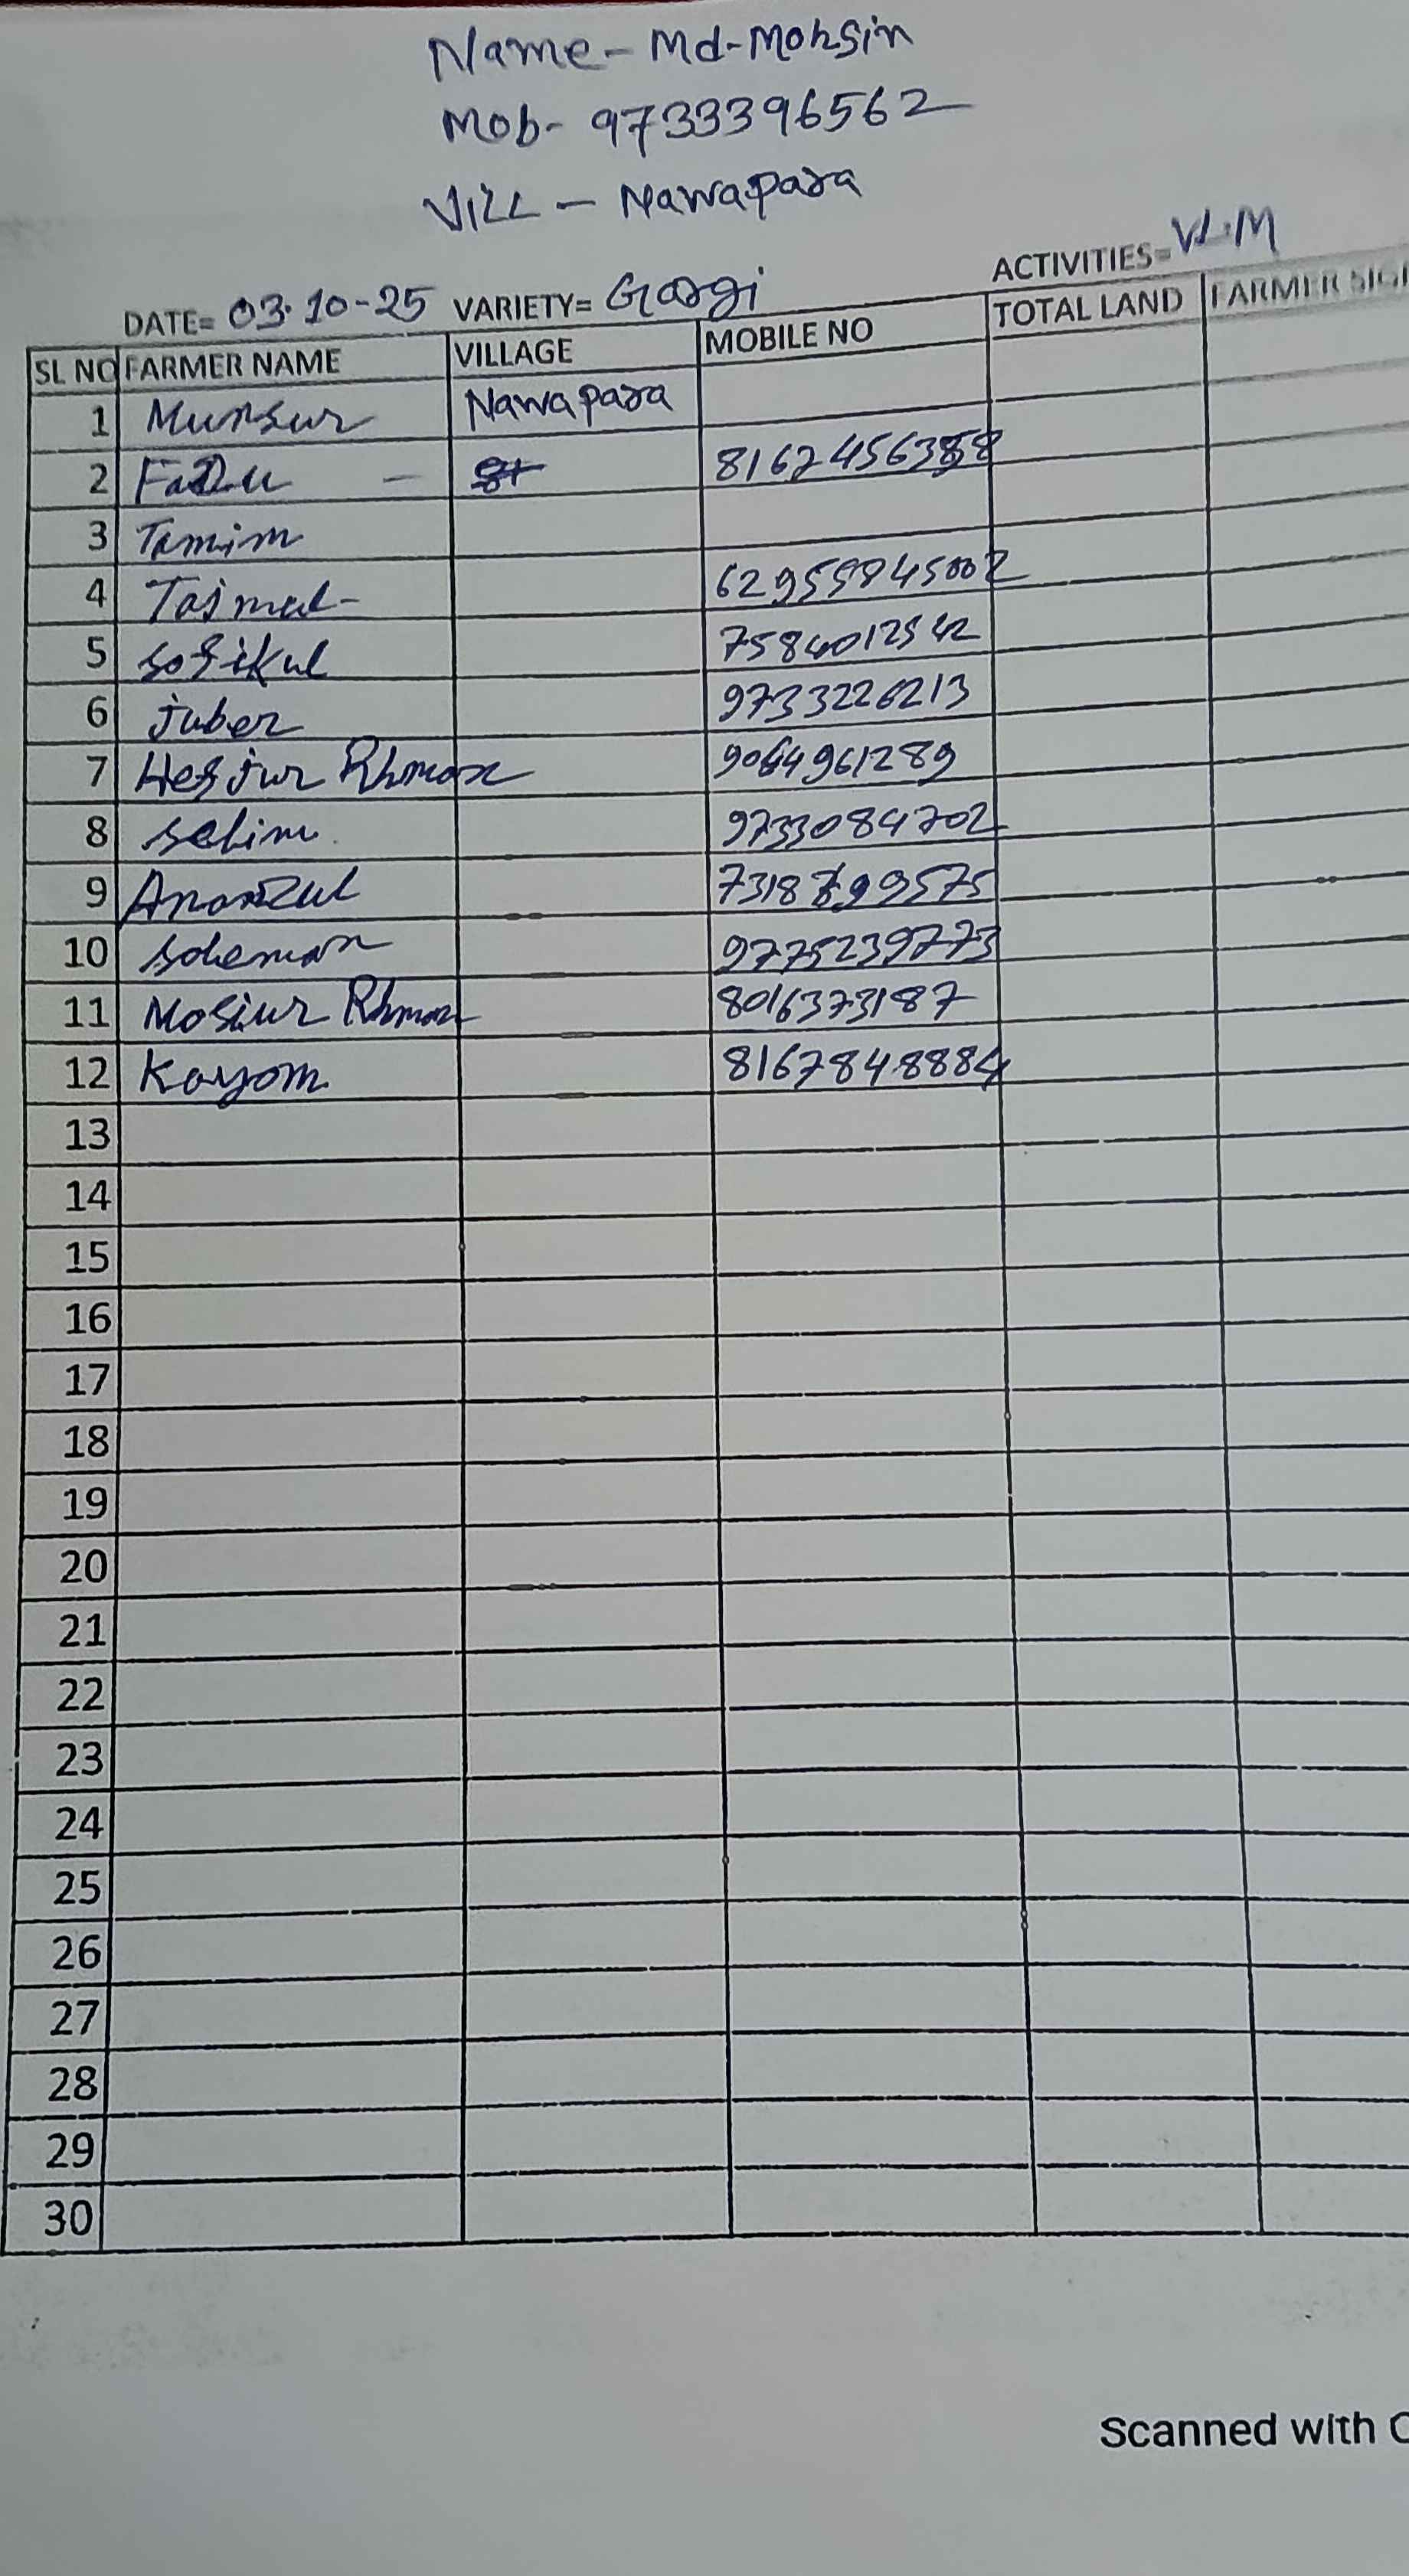 Name - Md-Mohsin
Mob- 9733396562
Vill - Nawapara
ACTIVITIES= V.L.M
DATE= 03.10-25 VARIETY= Gargi
SL NO FARMER NAME VILLAGE MOBILE NO TOTAL LAND FARMER
1 Munsur Nawapara
2
3 Tamim
4 Tajmul-
5 sofikul 7584012542
6 juber 9733226213
7 Hefjur Rhman 9064961289
8 selim 9733084702
9
10 soleman 9775239773
11 Mosiur Rhman 8016373187
12 Kayom 8167848884
13
14
15
16
17
18
19
20
21
22
23
24
25
26
27
28
29
30
Scanned with